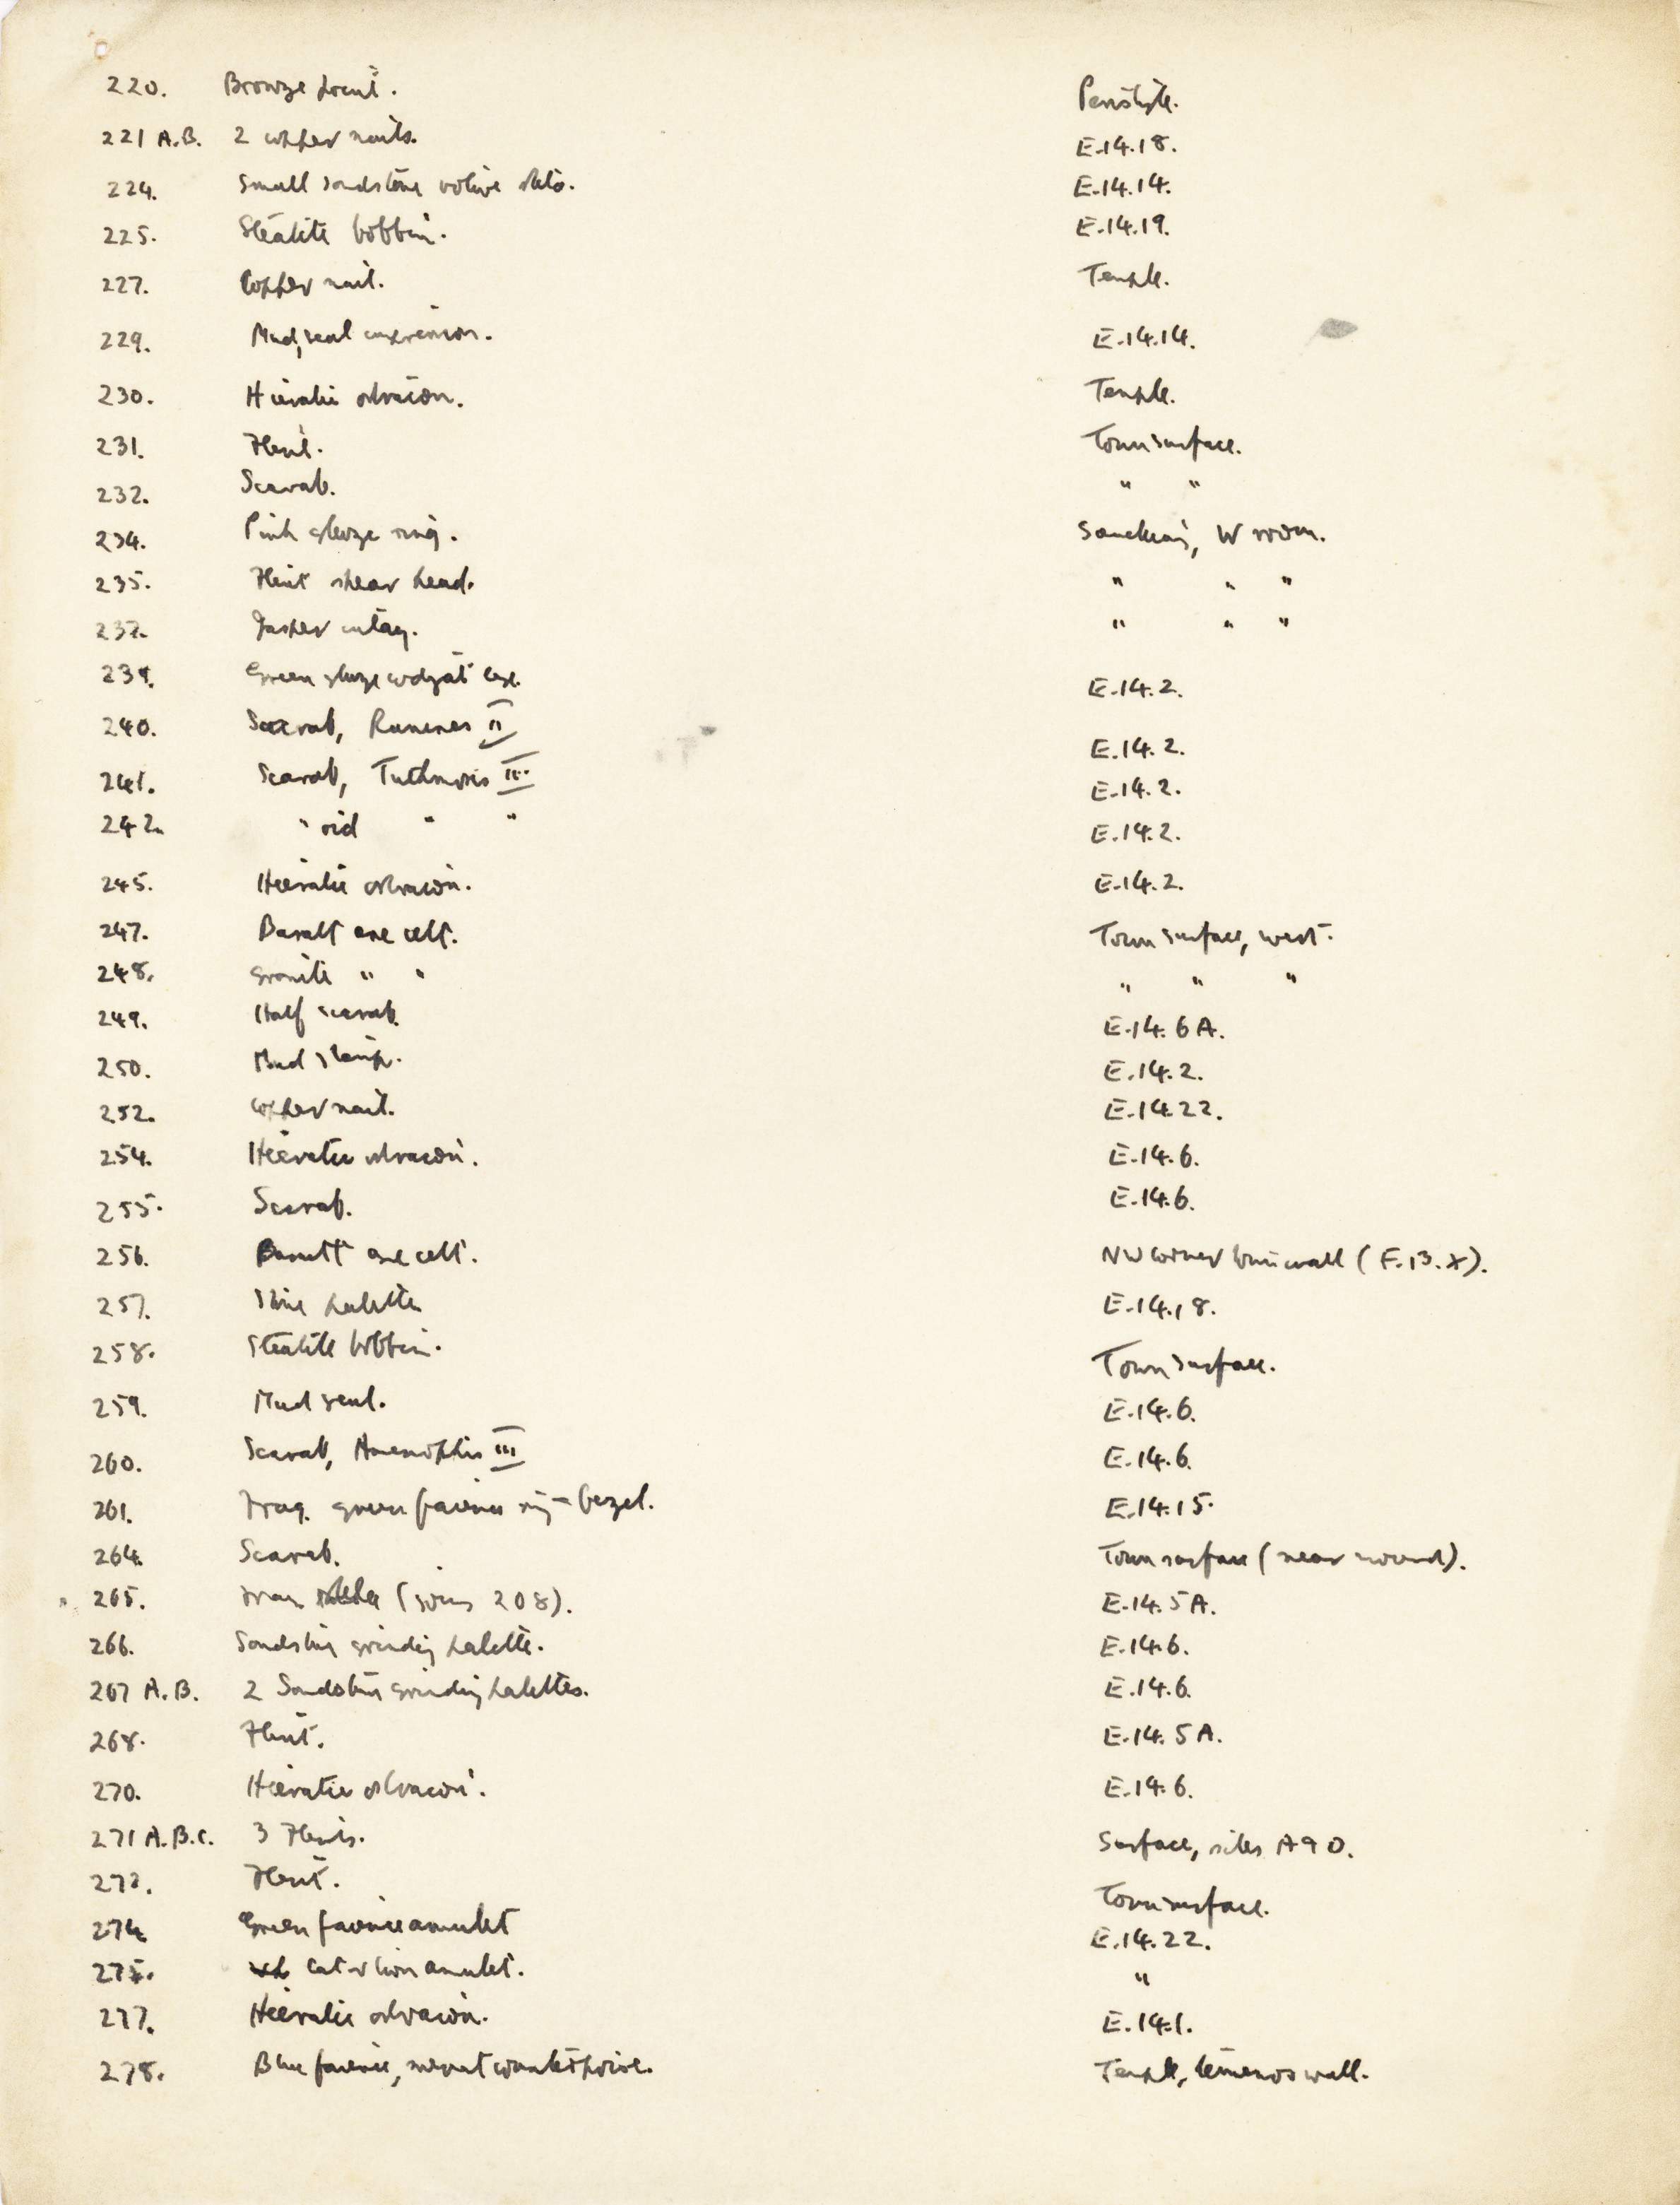 220. Bronze point. Peristyle.
221 A.B. 2 copper nails. E.14.18.
224. Small sandstone votive stela. E.14.14.
225. Steatite bobbin. E.14.19.
227. Copper nail. Temple.
229. Mud, seal impression. E.14.14.
230. Hieratic ostracon. Temple.
231. Flint. Town surface.
232. Scarab. " "
234. Pink glaze ring. Sanctuary, W room.
235. Flint spear head. " " "
237. Jasper inlay. " " "
239. Green glaze wdjat eye. E.14.2.
240. Scarab, Rameses II E.14.2.
241. Scarab, Tuthmosis III E.14.2.
242. " oid " " E.14.2.
245. Hieratic ostracon. E.14.2.
247. Basalt axe celt. Town surface, west.
248. Granite " " " " "
249. Half scarab. E.14.6A.
250. Mud stamp. E.14.2.
252. Copper nail. E.14.22.
254. Hieratic ostracon. E.14.6.
255. Scarab. E.14.6.
256. Basalt axe celt. NW corner town wall (F.13.X).
257. Stone palette E.14.18.
258. Steatite bobbin. Town surface.
259. Mud seal. E.14.6.
260. Scarab, Amenophis III E.14.6.
261. Frag. green faience ring-bezel. E.14.15.
264. Scarab. Town surface (near mound).
265. Frag. (joins 208). E.14.5A.
266. Sandstone grinding palette. E.14.6.
267 A.B. 2 Sandstone grinding palettes. E.14.6.
268. Flint. E.14.5A.
270. Hieratic ostracon. E.14.6.
271 A.B.C. 3 Flints. Surface, sites A & D.
272. Flint. Town surface.
274. Green faience amulet E.14.22.
275. Cat or lion amulet. "
277. Hieratic ostracon. E.14.1.
278. Blue faience, menat counterpoise. Temple, temenos wall.